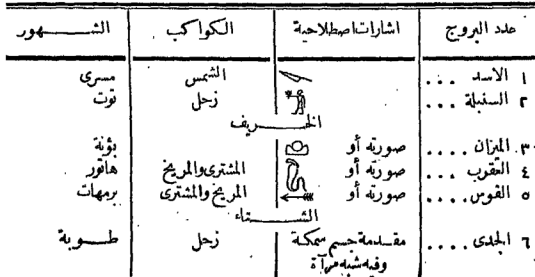 عدد البروج اشارات اصطلاحية الكواكب الشـــهور
١ الاسد ... الشمس مسرى
٢ السنبلة ... زحل توت
الخـــريف
٣ الميزان .... صورته أو بؤنة
٤ العقرب ... صورته أو المشترى والمريخ هاتور
٥ القوس .... صورته أو المريخ والمشترى برمهات
الشـــتاء
٦ الجدى .... مقدمة جسم سمكة زحل طـــوبة
وفيه شبه مرآة